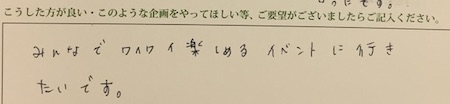 こうした方が良い・このような企画をやってほしい等、ご要望がございましたらご記入ください。
みんなでワイワイ楽しめるイベントに行き
たいです。